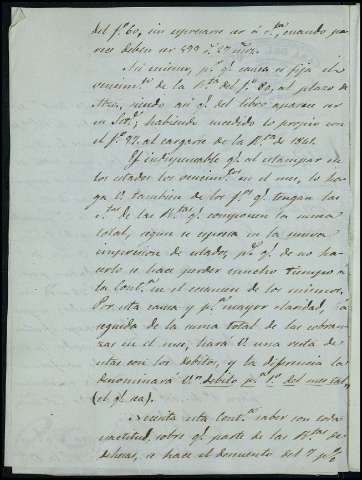 del f.º 60, sin espresarse si á c.ta, cuando pa-
rece deben ser 899 r.s 17 mrs.
Asi mismo, p.r q.e causa se fija el
vencim.to de la R.ta del f.º 80, al plazo de
siendo asi q.e del libro aparece ser
en Set.e, habiendo sucedido lo propio con
el f.º 97 al cargarse de la R.ta de 1841.
Es indispensable q.e al estampar en
los estados los vencim.tos en el mes, lo ha-
ga V. tambien de los f.s q.e tengan las
c.tas de las R.tas q.e componen la suma
total, segun se espresa en la nueva
impresion de estados, p.s q.e de no ha-
cerlo se hace perder mucho tiempo á
la Cont.ª en el examen de los mismos.
Por esta causa y p.ª mayor claridad, en
seguida de la suma total de las cobran-
zas en el mes, hará V. una resta de
estas con los debitos, y la diferencia la
denominará V. debito p.ª 1.º del mes tal,
(el q.e sea).
Necesita esta Cont.ª saber con toda
esactitud, sobre q.e parte de las R.tas
se hace el descuento del 7 p.%